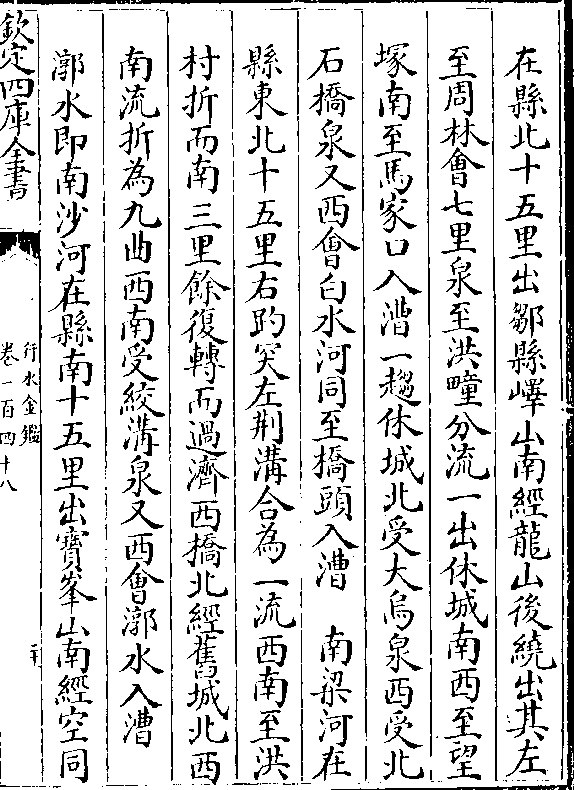 在縣北十五里出鄒縣嶧山南經龍山後繞出其左
至周林會七里泉至洪疃分流一出休城南西至望
塚南至馬家口入漕一趨休城北受大烏泉西受北
石橋泉又西會白水河同至橋頭入漕　南梁河在
縣東北十五里右趵突左荆溝合為一流西南至洪
村折而南三里餘復轉而過濟西橋北經舊城北西
南流折為九曲西南受絞溝泉又西會漷水入漕
漷水即南沙河在縣南十五里出寶峯山南經空同
欽定四庫全書
行水金鑑
卷一百四十八